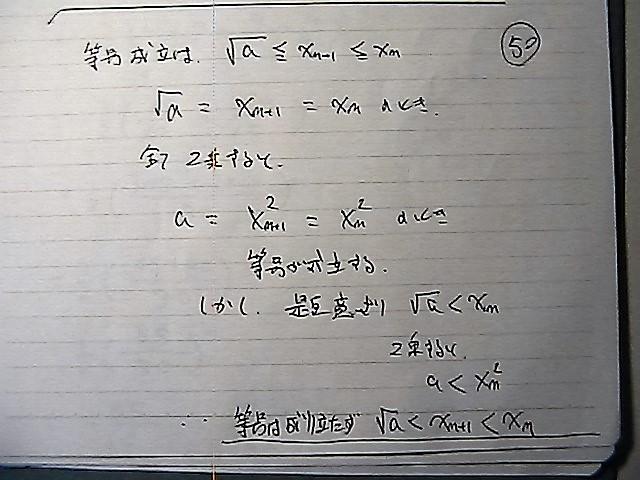 5⃝
等号成立は、 √a ≦ xn-1 ≦ xn
√a = xn+1 = xn のとき、
全て 2乗すると、
a = x²n+1 = x²n のとき
等号が成立する。
しかし、 定義より √a < xn
2乗すると、
a < xn²
∴ 等号は成り立たず √a < xn+1 < xn